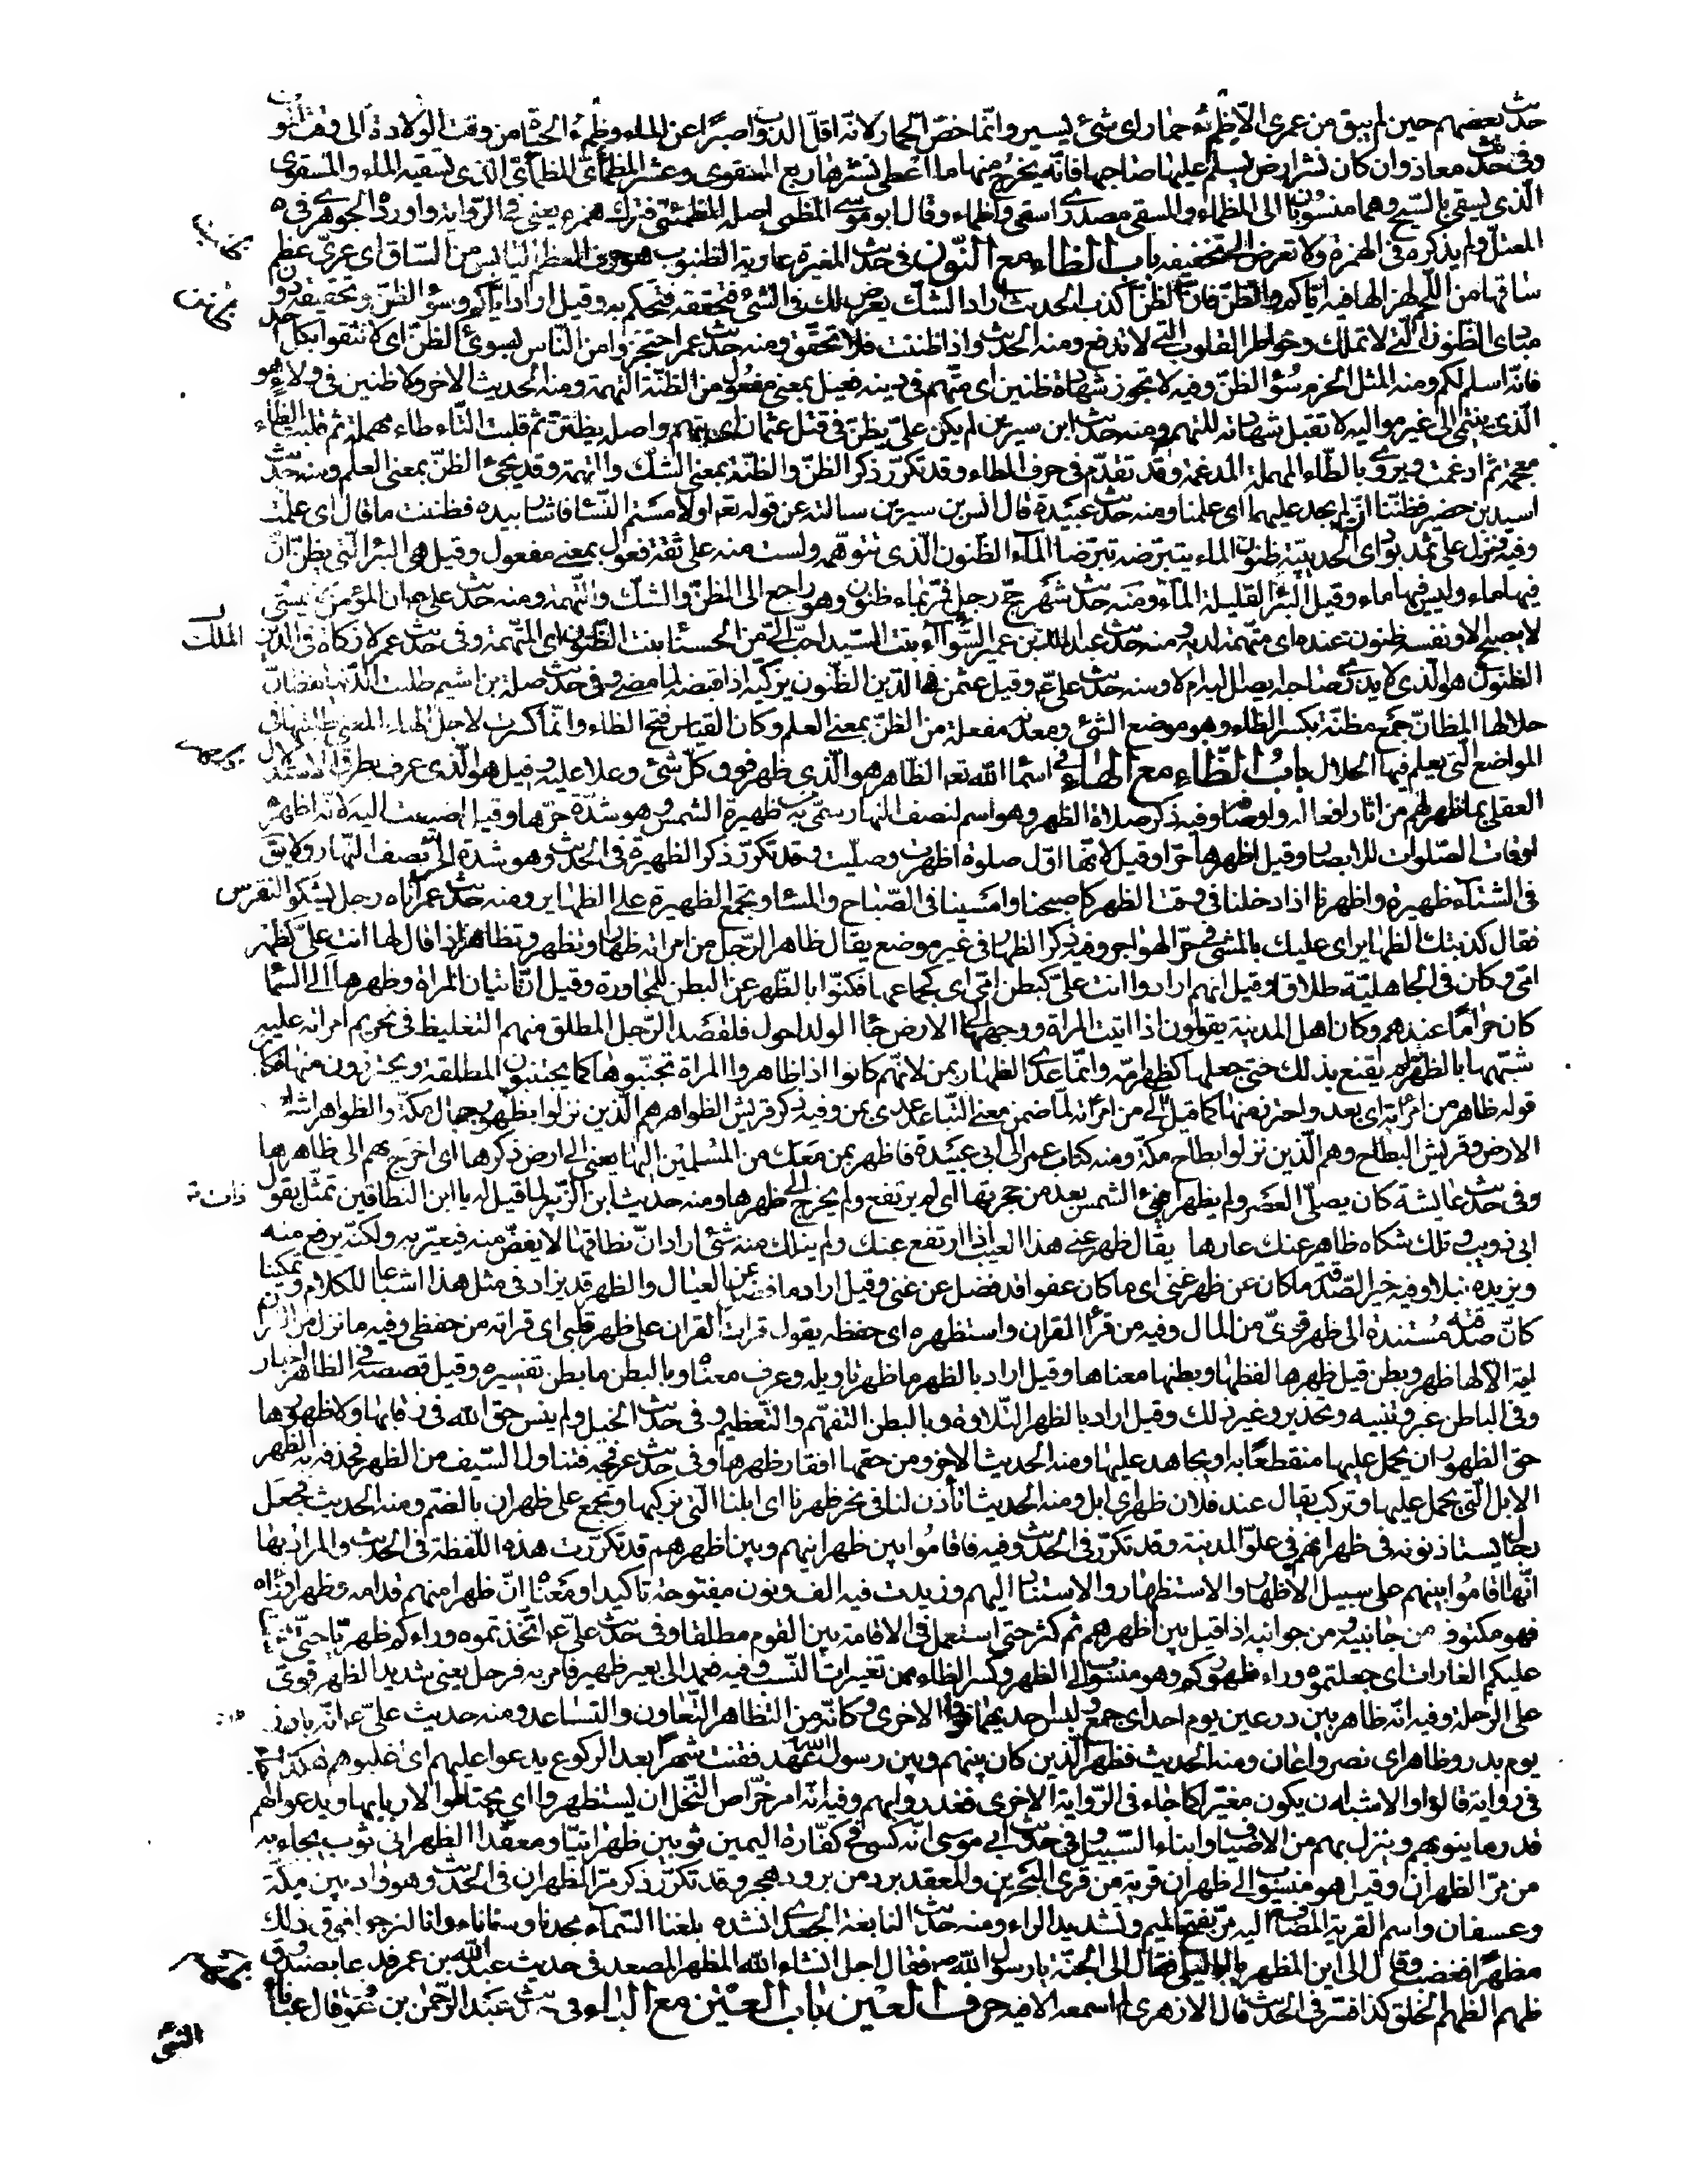 حدیث بعضهم حین لم یبق من عمری الا ظمء حمار ای شیء یسیر وانما خص الحمار لانه اقل الدواب صبرا عن الماء وظمء الحیاة من وقت الولادة الی وقت الموت
وفی حدیث معاذ وان کان نشر ارض یسلم علیها صاحبها فانه یخرج منها ما اعطی نشرها ربع المسقوی وعشر المظمئی المظمئی الذی تسقیه السماء والمسقوی
الذی یسقی بالسیح وهما منسوبان الی المظماء والمسقی مصدری اسقی واظماء وقال ابو موسی المظمی اصله المظمئی فترک همزه یعنی فی الروایة واورده الجوهری فی
المعتل ولم یذکره فی الهمزة ولا تعرض الی تخفیفه باب الظاء مع النون فی حدیث المغیرة عاریة الظنبوب هو حرف العظم الیابس من الساق ای عری عظم
ساقها من اللحم لهزالها فیه ایاکم والظن فان الظن اکذب الحدیث اراد الشک یعرض لک فی الشیء فتحققه وتحکم به وقیل اراد ایاکم وسوء الظن وتحقیقه دون
مبادی الظنون التی لا تملک وخواطر القلوب التی لا تدفع ومنه الحدیث واذا ظننت فلا تحقق ومنه حدیث عمر احتجزوا من الناس بسوء الظن ای لا تثقوا بکل احد
فانه اسلم لکم ومنه المثل الحزم سوء الظن وفیه لا تجوز شهادة ظنین ای متهم فی دینه فعیل بمعنی مفعول من الظنة التهمة ومنه الحدیث الاخر ولا ظنین فی ولاء هو
الذی ینتمی الی غیر موالیه لا تقبل شهادته للتهمة ومنه حدیث ابن سیرین لم یکن علی یظن فی قتل عثمان ای یتهم واصله یظتن ثم قلبت التاء طاء مهملة ثم قلبت الظاء
معجمة ثم ادغمت ویروی بالطاء المهملة المدغمة وقد تقدم فی حرف الطاء وقد تکرر ذکر الظن والظنة بمعنی الشک والتهمة وقد یجیء الظن بمعنی العلم ومنه حدیث
اسید بن حضیر فظننا ان لم یجد علیهما ای علمنا ومنه حدیث عبیدة قال انس بن سیرین سالته عن قوله تع او لامستم النساء فاشار بیده فظننت ما قال ای علمت
وفیه فنزل علی ثمد بوادی الحدیبیة ظنون الماء یتبرضه تبرضا الماء الظنون الذی تتوهمه ولست منه علی ثقة فعول بمعنی مفعول وقیل هی البئر التی یظن ان
فیها ماء ولیس فیها ماء وقیل البئر القلیلة الماء ومنه حدیث شهر حج رجل فمر بماء ظنون وهو راجع الی الظن والشک والتهمة ومنه حدیث علی ع ان المؤمن لا یمسی
لا یصبح الا ونفسه ظنون عنده ای متهمة لدیه ومنه حدیث عبد الملک بن عمیر السواء بنت السید احب الی من الحسناء بنت الظنون ای المتهمة وفی حدیث عمر لا زکاة فی الدین
الظنون هو الذی لا یدری صاحبه ایصل الیه ام لا ومنه حدیث علی ع وقیل عثمن فی الدین الظنون یزکیه اذا قبضه لما مضی وفی حدیث صلة بن اشیم طلبت الدنیا مظان
حلالها المظان جمع مظنة بکسر الظاء وهو موضع الشیء ومعدنه مفعلة من الظن بمعنی العلم وکان القیاس فتح الظاء وانما کسرت لاجل الهاء المعنی طلبتها فی
المواضع التی یعلم فیها الحلال باب الظاء مع الهاء فی اسماء الله تع الظاهر هو الذی ظهر فوق کل شیء وعلا علیه وقیل هو الذی عرف بطرق الاستدلال
العقلی بما ظهر لهم من اثار افعاله واوصافه وفیه ذکر صلاة الظهر وهو اسم لنصف النهار سمی به من ظهیرة الشمس وهو شدة حرها وقیل اضیفت الیه لانه اظهر
اوقات الصلوات للابصار وقیل اظهرها حرا وقیل لانها اول صلوة اظهرت وصلیت وقد تکرر ذکر الظهیرة فی الحدیث وهو شدة الحر نصف النهار ولا یق
فی الشتاء ظهیرة واظهرنا اذا دخلنا فی وقت الظهر کاصبحنا وامسینا فی الصباح والمساء وتجمع الظهیرة علی الظهایر ومنه حدیث عمر اتاه رجل یشکو النقرس
فقال کذبتک الظهایر ای علیک بالمشی فی حر الهواجر وفیه ذکر الظهار فی غیر موضع یقال ظاهر الرجل من امراته ظهارا وتظهر وتظاهر اذا قال لها انت علی کظهر
امی وکان فی الجاهلیة طلاقا وقیل انهم ارادوا انت علی کبطن امی ای کجماعها فکنوا بالظهر عن البطن للمجاورة وقیل ان اتیان المراة وظهرها الی السماء
کان حراما عندهم وکان اهل المدینة یقولون اذا اتیت المراة ووجهها الی الارض جاء الولد احول فلقصد الرجل المطلق منهم التغلیظ فی تحریم امراته علیه
شبهها بالظهر ثم لم یقنع بذلک حتی جعلها کظهر امه وانما عدی الظهار بمن لانهم کانوا اذا ظاهروا المراة تجنبوها کما یجتنبون المطلقة ویحترزون منها فکان
قوله ظاهر من امراته ای بعد واحترز منها کما قیل الی من امراته لما ضمن معنی التباعد عدی بمن وفیه ذکر قریش الظواهر هم الذین نزلوا بظهور جبال مکة والظواهر اشراف
الارض وقریش البطاح وهم الذین نزلوا بطاح مکة ومنه کتاب عمر الی ابی عبیدة فاظهر بمن معک من المسلمین الیها یعنی الی ارض ذکرها ای اخرج بهم الی ظاهرها
وفی حدیث عایشة کان یصلی العصر ولم یظهر فیء الشمس بعد من حجرتها ای لم یرتفع ولم یخرج الی ظهرها ومنه حدیث ابن الزبیر لما قیل له یا ابن النطاقین تمثل بقول
ذات
ابی ذویب وتلک شکاة ظاهر عنک عارها یقال ظهر عنی هذا العیب اذا ارتفع عنک ولم ینلک منه شیء اراد ان نطاقها لا یغض منه فیعیر به ولکنه یرفع منه
ویزیده نبلا وفیه خیر الصدقة ما کان عن ظهر غنی ای ما کان عفوا قد فضل عن غنی وقیل اراد ما فضل عن العیال والظهر قد یزاد فی مثل هذا اشباعا للکلام وتمکینا
کان صدقته مستندة الی ظهر قوی من المال وفیه من قرأ القران واستظهره ای حفظه یقول قرات القران علی ظهر قلبی ای قراته من حفظی وفیه ما نزل من القران
ایة الا لها ظهر وبطن قیل ظهرها لفظها وبطنها معناها وقیل اراد بالظهر ما ظهر تاویله وعرف معناه وبالبطن ما بطن تفسیره وقیل قصصه فی الظاهر اخبار
وفی الباطن عبر وتنبیه وتحذیر وغیر ذلک وقیل اراد بالظهر التلاوة وبالبطن التفهم والتعظیم وفی حدیث الخیل ولم ینس حق الله فی رقابها ولا ظهورها
حق الظهور ان یحمل علیها منقطعا به او یجاهد علیها ومنه الحدیث الاخر ومن حقها افقار ظهرها وفی حدیث عرفجة فتناول السیف من الظهر فحذفه به الظهر
الابل التی یحمل علیها وترکب یقال عند فلان ظهر ای ابل ومنه الحدیث اتأذن لنا فی نحر ظهرنا ای ابلنا التی نرکبها وتجمع علی ظهران بالضم ومنه الحدیث فجعل
رجال یستاذنونه فی ظهرانهم فی علو المدینة وقد تکرر فی الحدیث وفیه فاقاموا بین ظهرانیهم وبین اظهرهم قد تکررت هذه اللفظة فی الحدیث والمراد بها
انها اقاموا بینهم علی سبیل الاظهار والاستظهار والاستناد الیهم وزیدت فیه الف ونون مفتوحة تاکیدا ومعناه ان ظهرا منهم قدامه وظهرا وراءه
فهو مکنوف من جانبیه ومن جوانبه اذا قیل بین اظهرهم ثم کثر حتی استعمل فی الاقامة بین القوم مطلقا وفی حدیث علی ع اتخذتموه وراءکم ظهریا حتی شنت
علیکم الغارات ای جعلتموه وراء ظهورکم وهو منسوب الی الظهر وکسر الظاء من تغییرات النسب وفیه فعمد الی بعیر ظهیر فامر به فرحل یعنی شدید الظهر قوی
علی الرحلة وفیه انه ظاهر بین درعین یوم احد ای جمع ولبس احدیهما فوق الاخری وکانه من التظاهر التعاون والتساعد ومنه حدیث علی ع انه بارز
یوم بدر وظاهر ای نصر واعان ومنه الحدیث فظهر الذین کان بینهم وبین رسول الله عهد فقنت شهرا بعد الرکوع یدعوا علیهم ای غلبوهم هکذا جاء
فی روایة قالوا والاشبه ان یکون مغیرا کما جاء فی الروایة الاخری فغدروا بهم وفیه انه امر خراص النخل ان یستظهروا ای یحتاطوا لاربابها ویدعوا لهم
قدر ما ینوبهم وینزل بهم من الاضیاف وابناء السبیل وفی حدیث ابی موسی انه کسی فی کفارة الیمین ثوبین ظهرانیا ومعقدا الظهرانی ثوب یجاء به
من مر الظهران وقیل هو منسوب الی ظهران قریة من قری البحرین والمعقد برد من برود هجر وقد تکرر ذکر مر الظهران فی الحدیث وهو واد بین مکة
وعسفان واسم القریة المضافة الیه مر بفتح المیم وتشدید الراء ومنه حدیث النابغة الجعدی انشده بلغنا السماء مجدنا وسناءنا وانا لنرجوا فوق ذلک
مظهرا فغضب وقال الی این المظهر یا ابا لیلی قال الی الجنة یا رسول الله ص فقال اجل انشاء الله المظهر المصعد فی حدیث عبد الله بن عمر فدعا بصندوق
ظهم الظهم الخلق کذا فسر فی الحدیث قال الازهری لم اسمعه الا فیه حرف العین باب العین مع الباء فی حدیث عبد الرحمن بن عوف قال عبأنا
النبی